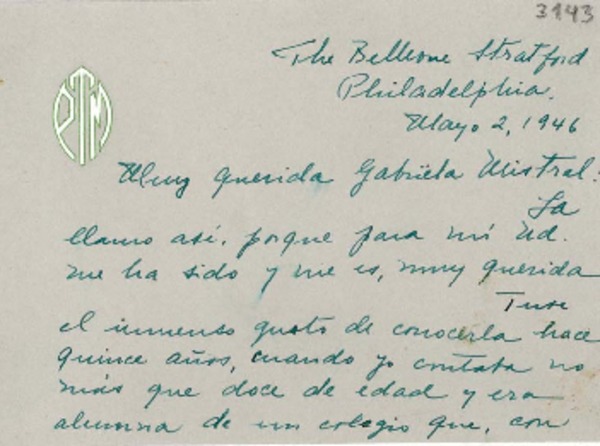 3143
The Bellevue Stratford
Philadelphia.
Mayo 2, 1946
PTM
Muy querida Gabriela Mistral:
La
llamo así, porque para mí Ud.
me ha sido y me es, muy querida
Tuve
el inmenso gusto de conocerla hace
quince años, cuando yo contaba no
más que doce de edad y era
alumna de un colegio que, con